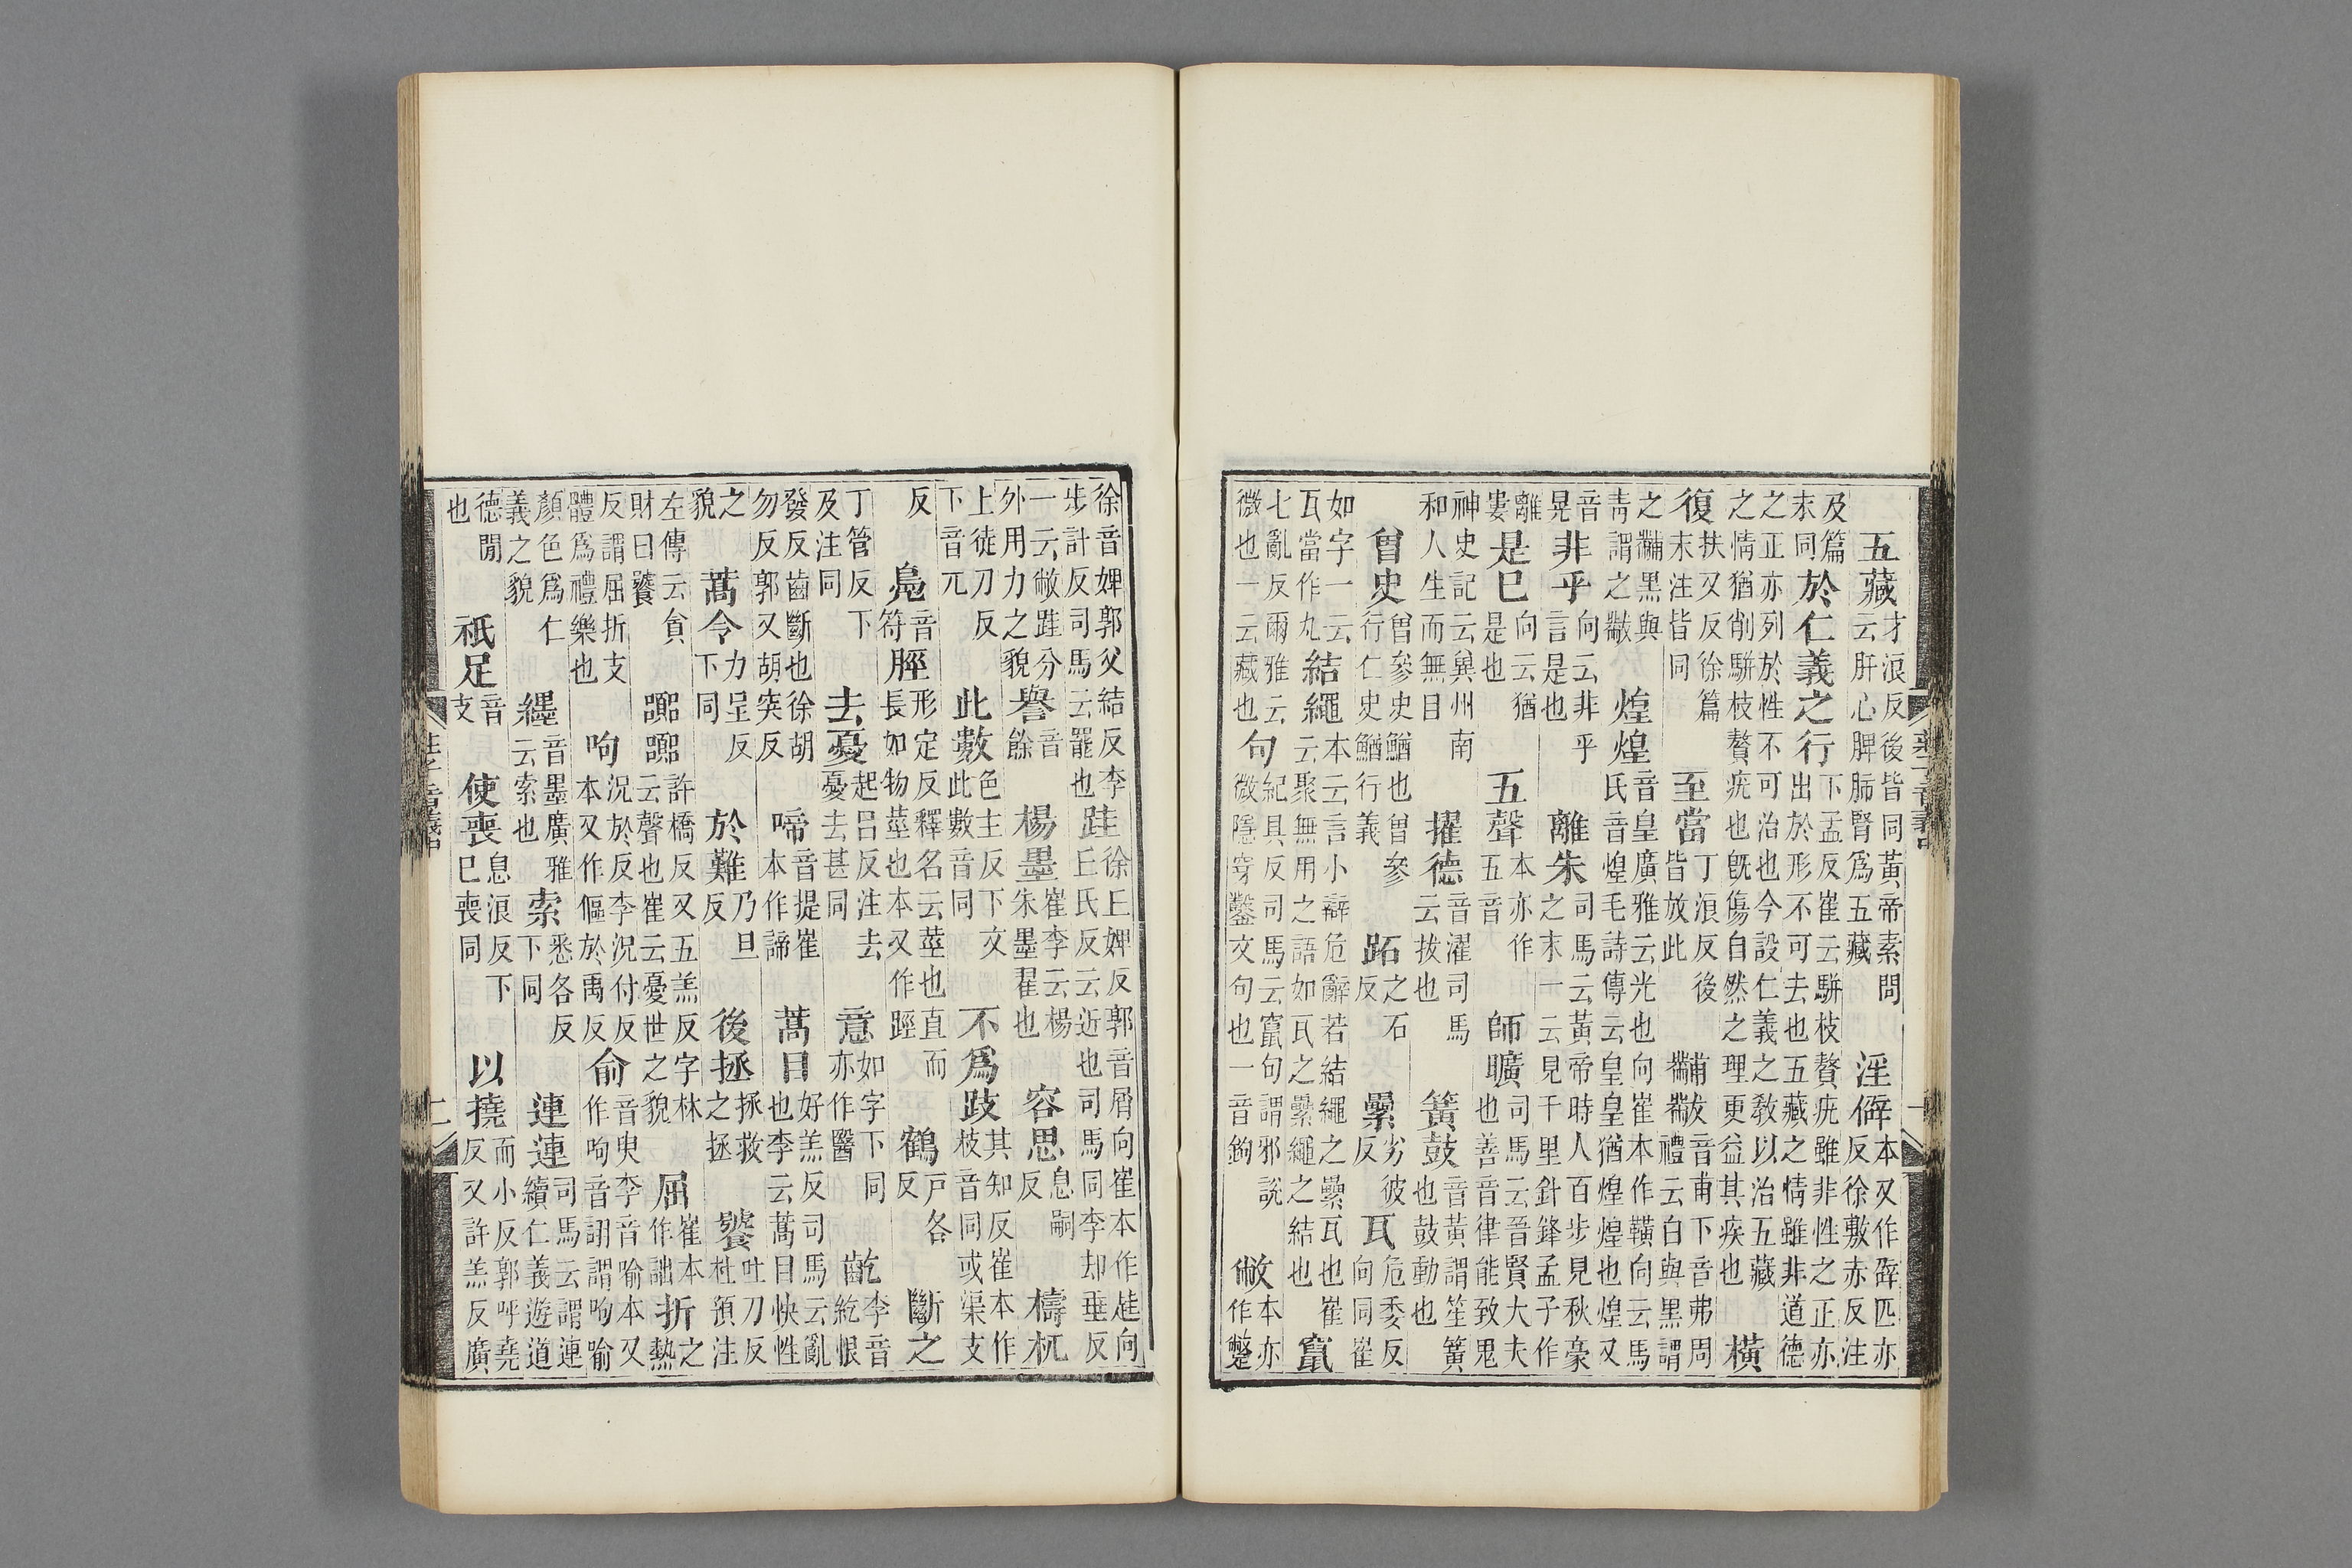 五藏才浪反後皆同黃帝素問云肝心脾肺腎爲五藏淫僻本又作辟匹亦反徐敷亦反注
及篇末同於仁義之行下孟反崔云駢枝贅疣雖非性之正亦出於形不可去也五藏之情雖非道德
之正亦列於性不可治也今設仁義之教以治五藏之情猶削駢枝贅疣也旣傷自然之理更益其疾也橫
復扶又反徐篇末注皆同至當丁浪反後皆放此黼黻音甫下音弗周禮云白與黑謂
之黼黑與靑謂之黻煌煌音皇廣雅云光也向崔本作䪄向云馬氏音煌毛詩傳云皇皇猶煌煌也煌又
音晃非乎向云非乎言是也離朱司馬云黃帝時人百步見秋豪之末一云見千里針鋒孟子作
離婁是已向云猶是也五聲本亦作五音師曠司馬云晉賢大夫也善音律能致鬼
神史記云兾州南和人生而無目擢德音濯司馬云拔也簧鼓音黃謂笙簧也鼓動也
曾史曾參史鰌也曾參行仁史鰌行義跖之石反纍劣彼反瓦危委反向同崔
如字一云瓦當作丸結繩本云言小辯危辭若結繩之纍瓦也崔云聚無用之語如瓦之纍繩之結也竄
七亂反爾雅云微也一云藏也句紀具反司馬云竄句謂邪說微隱穿鑿文句也一音鉤敝本亦作蹩
徐音婢郭父結反李步計反司馬云罷也跬徐丘婢反郭音屑向崔本作趌向丘氏反云近也司馬同李却垂反
一云敝跬分外用力之貌譽音餘楊墨崔李云楊朱墨翟也容思息嗣反檮杌
上徒刀反下音兀此數色主反下文此數音同不爲跂其知反崔本作枝音同或渠支
反鳧音符脛形定反釋名云莖也直而長如物莖也本又作踁鶴戶各反斷之
丁管反下及注同去憂起呂反注去憂去甚同意如字下同亦作醫齕李音紇恨
發反齒斷也徐胡勿反郭又胡突反啼音提崔本作諦蒿目好羔反司馬云亂也李云蒿目快性
之貌蒿令力呈反下同於難乃旦反後拯拯救之拯饕吐刀反杜預注
左傳云貪財曰饕嚻嚻許橋反又五羔反字林云聲也崔云憂世之貌屈崔本作詘折之熱
反謂屈折支體爲禮樂也呴況於反李況付反本又作傴於禹反俞音臾李音喻本又作呴音詡謂呴喻
顏色爲仁義之貌纆音墨廣雅云索也索悉各反下同連連司馬云謂連續仁義遊道
德閒也祇足音支使喪息浪反下已喪同以撓而小反郭呼堯反又許羔反廣